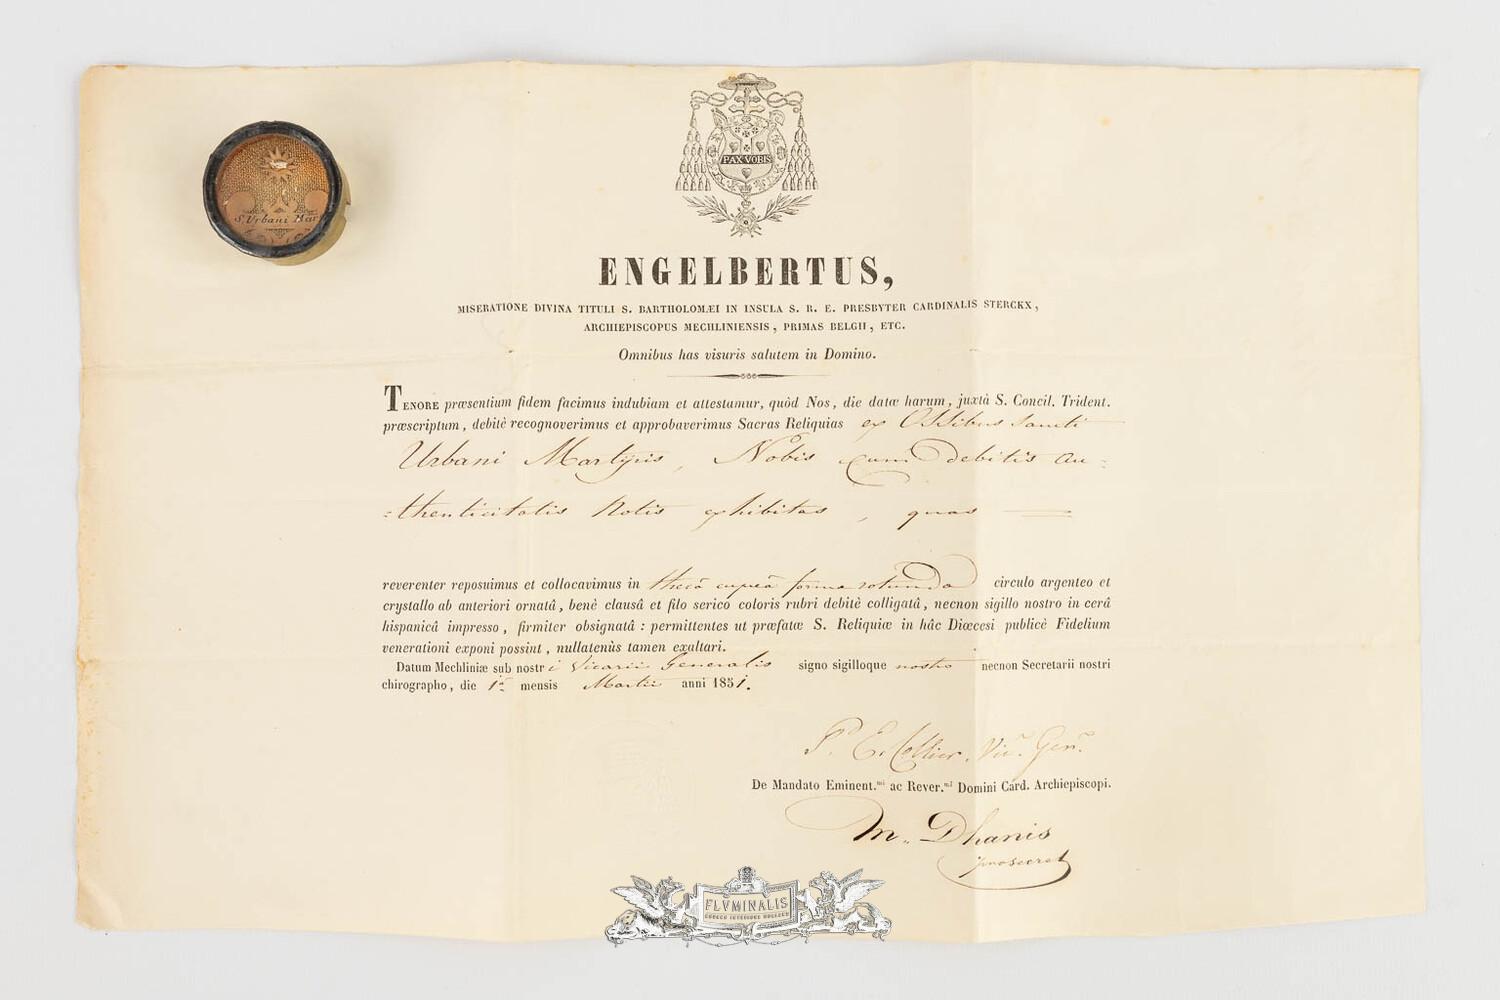 S. Urbani Mar
PAX VOBIS
ENGELBERTUS,
MISERATIONE DIVINA TITULI S. BARTHOLOMÆI IN INSULA S. R. E. PRESBYTER CARDINALIS STERCKX,
ARCHIEPISCOPUS MECHLINIENSIS, PRIMAS BELGII, ETC.
Omnibus has visuris salutem in Domino.
TENORE præsentium fidem facimus indubiam et attestamur, quòd Nos, die datæ harum, juxtà S. Concil. Trident.
præscriptum, debitè recognoverimus et approbaverimus Sacras Reliquias ex Ossibus sancti
Urbani Martyris, Nobis cum debitis au=
=thenticitatis notis exhibitas, quas
reverenter reposuimus et collocavimus in thecâ cupreâ forma rotunda circulo argenteo et
crystallo ab anteriori ornatâ, benè clausâ et filo serico coloris rubri debitè colligatâ, necnon sigillo nostro in cerâ
hispanicâ impresso, firmiter obsignatâ: permittentes ut præfatæ S. Reliquiæ in hâc Diœcesi publicè Fidelium
venerationi exponi possint, nullatenùs tamen exaltari.
Datum Mechliniæ sub nostri Vicarii Generalis signo sigilloque nostro necnon Secretarii nostri
chirographo, die 1ª mensis Martii anni 1851.
P. E. Collier. Vic. Gen.
De Mandato Eminent.mi ac Rever.mi Domini Card. Archiepiscopi.
M. Dhanis
prosecret
FLVMINALIS